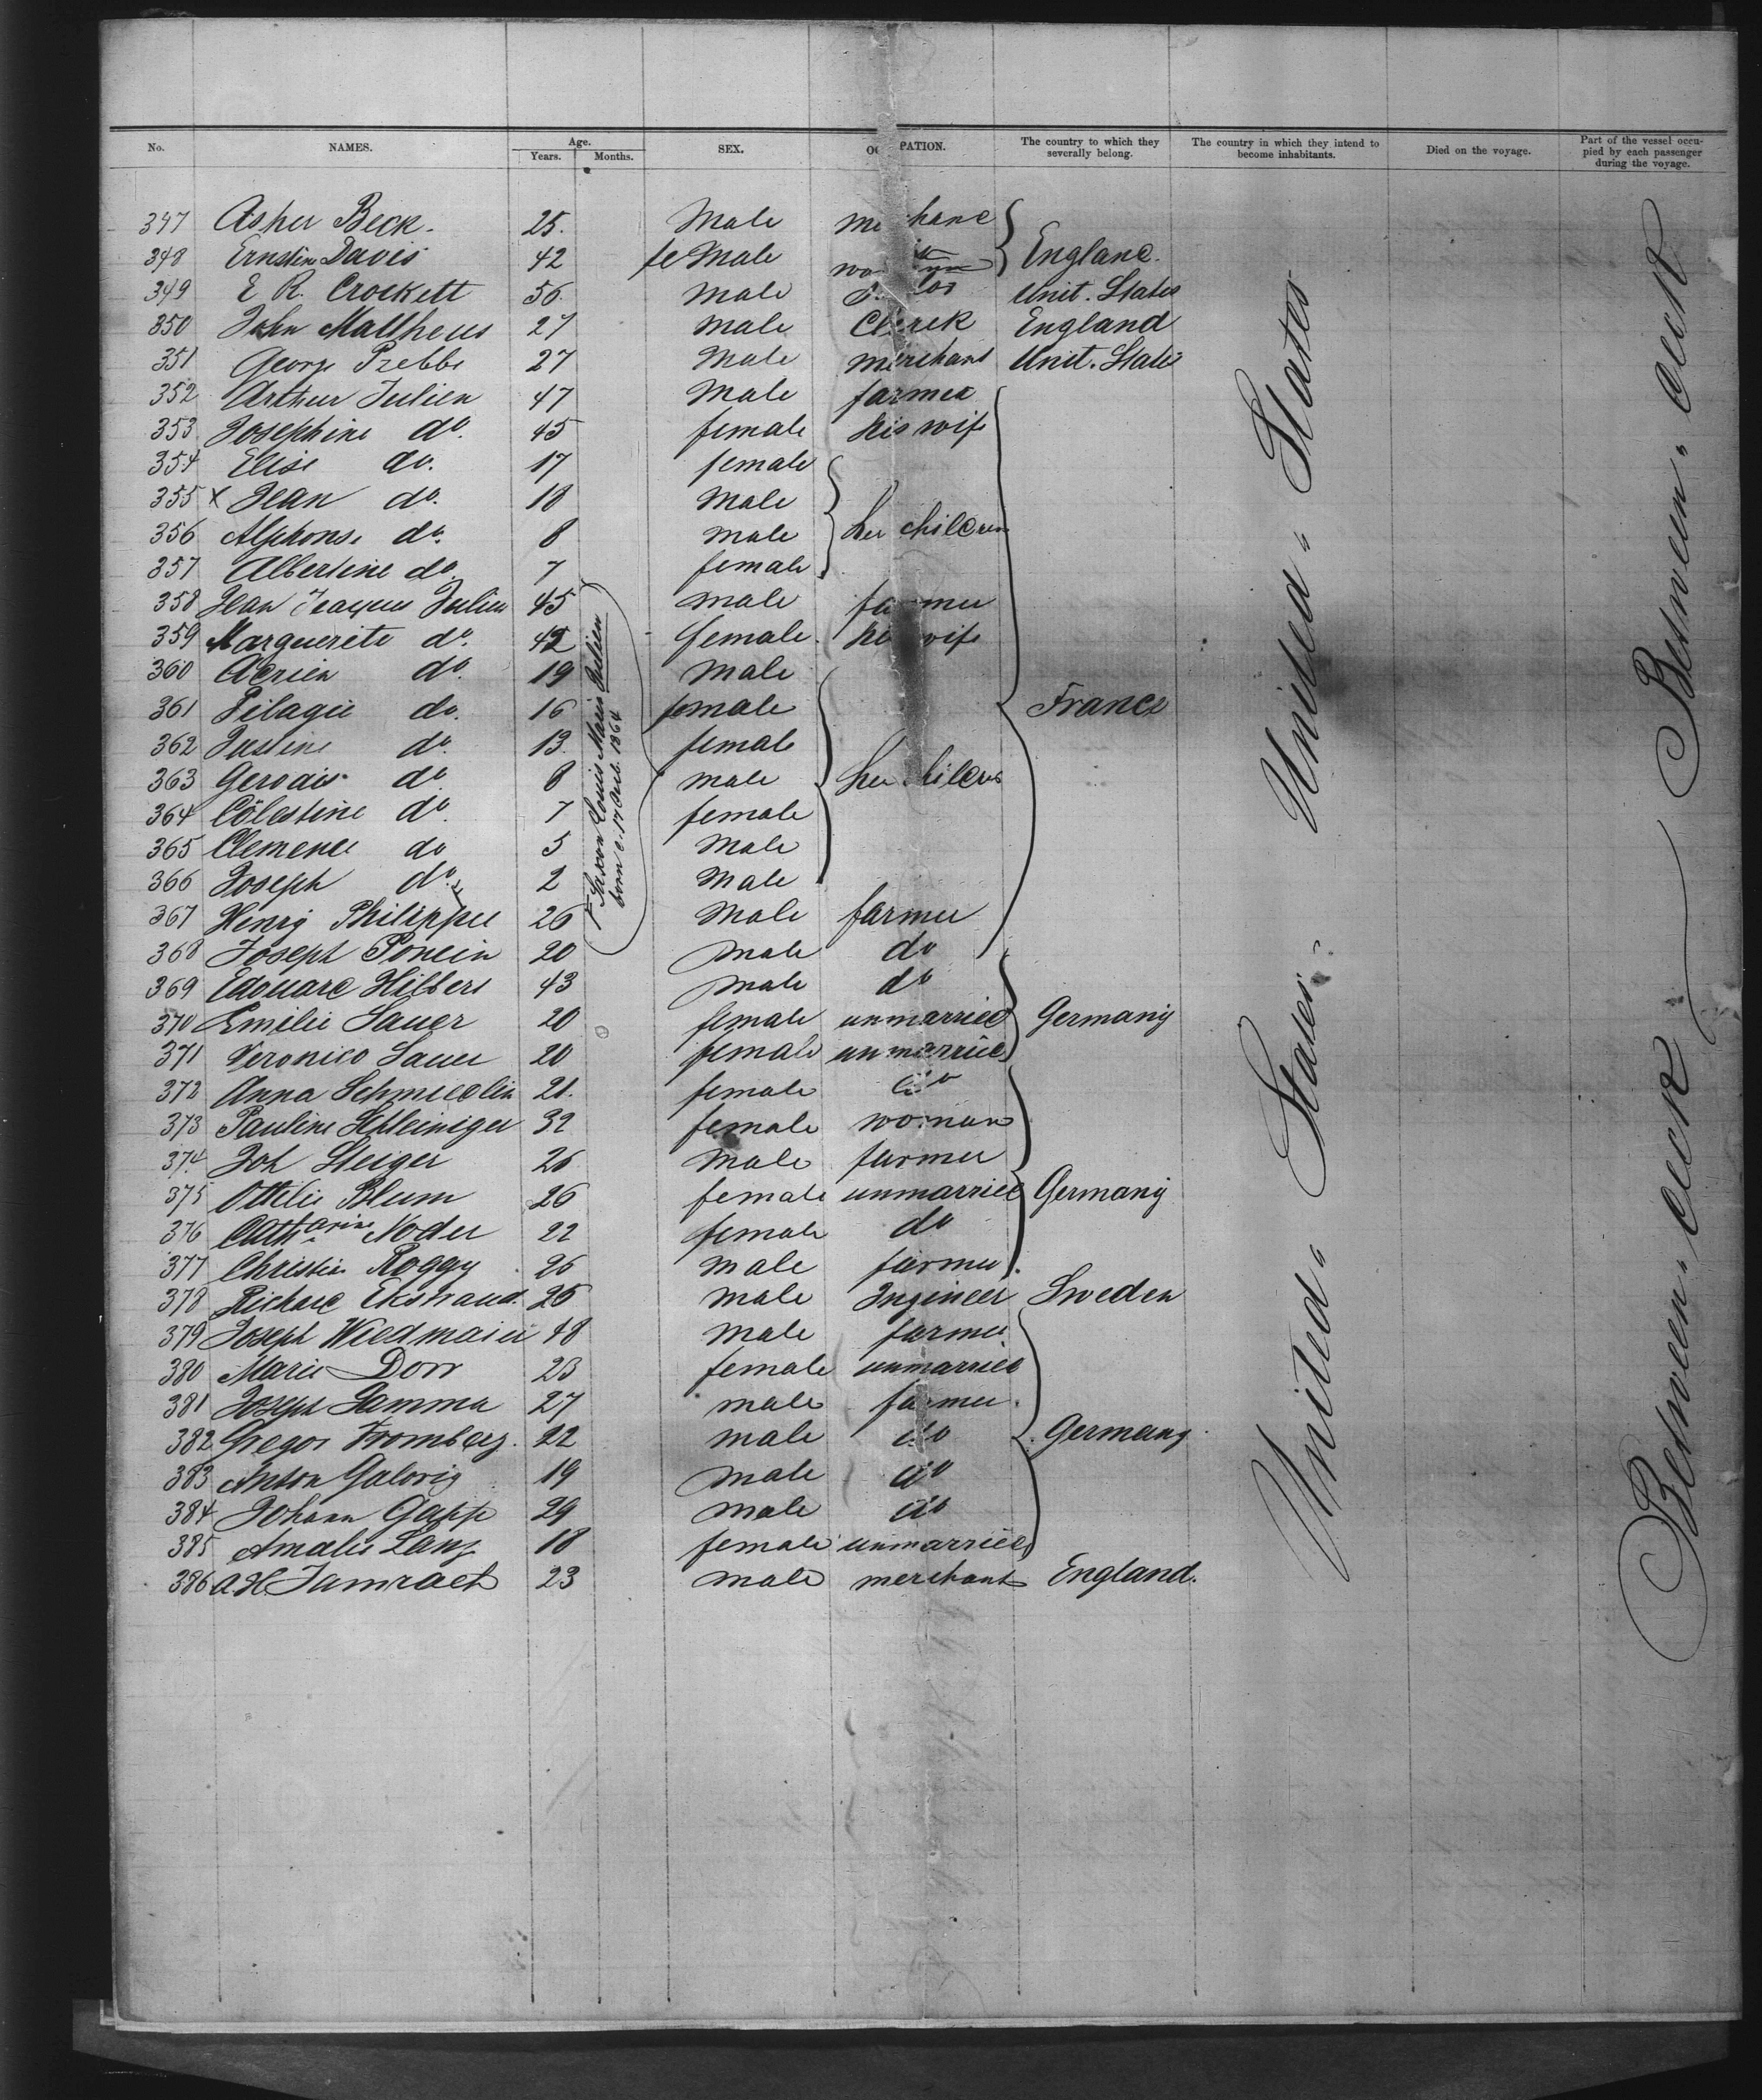 No. NAMES. Age. Years. Months. SEX. PATION. The country to which they severally belong. The country in which they intend to become inhabitants. Died on the voyage. Part of the vessel occupied by each passenger during the voyage.
347 Asher Beck. 25. Male England.
348 Ernstin Davis 42 feMale
349 E R. Crockett 56. Male Unit. States
350 John Mattheus 27 Male Clerk England
351 George 27 Male merchant Unit. States
352 Arthur Julien 47 Male farmer
353 Josephine do. 45 female his wife
354 Elise do. 17 female
355 x Jean do. 10 Male
356 Alphonse do. 8 male her children
357 Albertine do 7 female
358 Jean Jacques Julien 45 male farmer
359 Marguerite do. 42 female. his wife
360 Adrien do. 19 Male
361 Pelagie do. 16 female France
362 Justine do. 13. female
363 Gervais do 8 male her children
364 Cölestine do. 7 female
365 Clemence do 5 Male
366 Joseph do. 2 Male
† Saxon Louis Marie Julien
born 1864
367 Henry Philippe 26 Male farmer
368 Joseph Poncin 20 male do
369 Edouard Hilbert 43 male do
370 Emilie Sauer 20 female unmarried Germany
371 Veronica Sauer 20 female unmarried
372 Anna Schmiedlin 21. female do
373 Pauline Schleiniger 32 female woman
374 Joh Steiger 26 male farmer
375 Ottilie Blum 26 female unmarried Germany
376 Catharine Noder 22 female do
377 Christian Roggy 26 male farmer.
378 Richard Ekstrand. 26 male Ingineer Sweden
379 Joseph Wiedmaier 48 male farmer
380 Marie Dorr 23 female unmarried
381 Joseph Lamma 27 male farmer.
382 Gregor Fromberg. 22 male do Germany
383 Anton 19 male do
384 Johann Gapp 29 male do
385 Amalie Lang 18 female unmarried
386 A H. Jamrach 23 male merchant England.
United States
United States
Between deck
Between deck